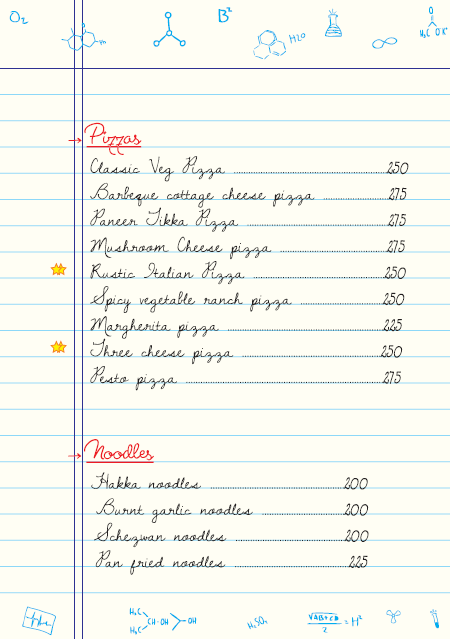 O2
B²
H2O
O
H₃C OR
Pizzas
Classic Veg Pizza 250
Barbeque cottage cheese pizza 275
Paneer Tikka Pizza 275
Mushroom Cheese pizza 275
Rustic Italian Pizza 250
Spicy vegetable ranch pizza 250
Margherita pizza 225
Three cheese pizza 250
Pesto pizza 275
Noodles
Hakka noodles 200
Burnt garlic noodles 200
Schezwan noodles 200
Pan fried noodles 225
H₃C
CH-OH OH
H₃C
H₂SO₄
= H²
2